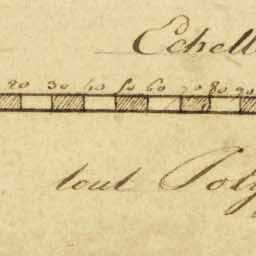 Echell
20 30 40 50 60 70 80 90
tout Poly